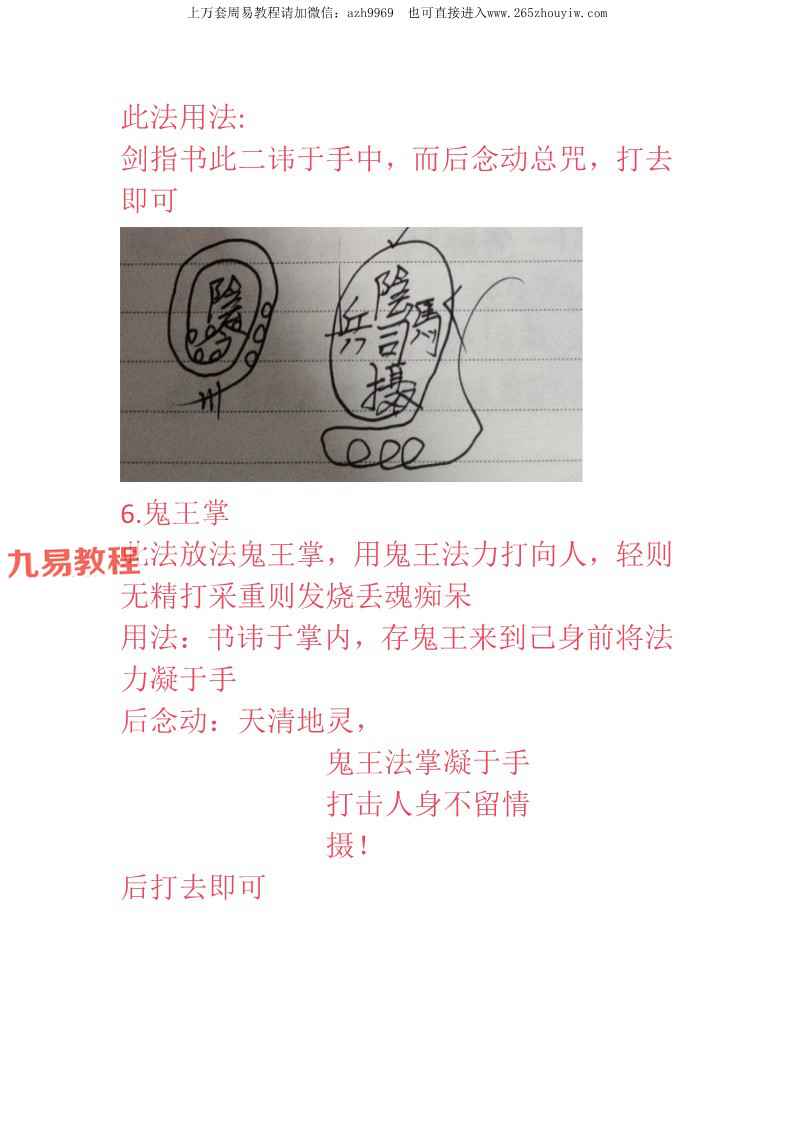 上万套周易教程请加微信：azh9969 也可直接进入www.265zhouyiw.com
此法用法:
剑指书此二讳于手中，而后念动总咒，打去
即可
陰
陰
兵司馬
摄
6.鬼王掌
九易教程
法放法鬼王掌，用鬼王法力打向人，轻则
无精打采重则发烧丢魂痴呆
用法：书讳于掌内，存鬼王来到己身前将法
力凝于手
后念动：天清地灵，
鬼王法掌凝于手
打击人身不留情
摄！
后打去即可